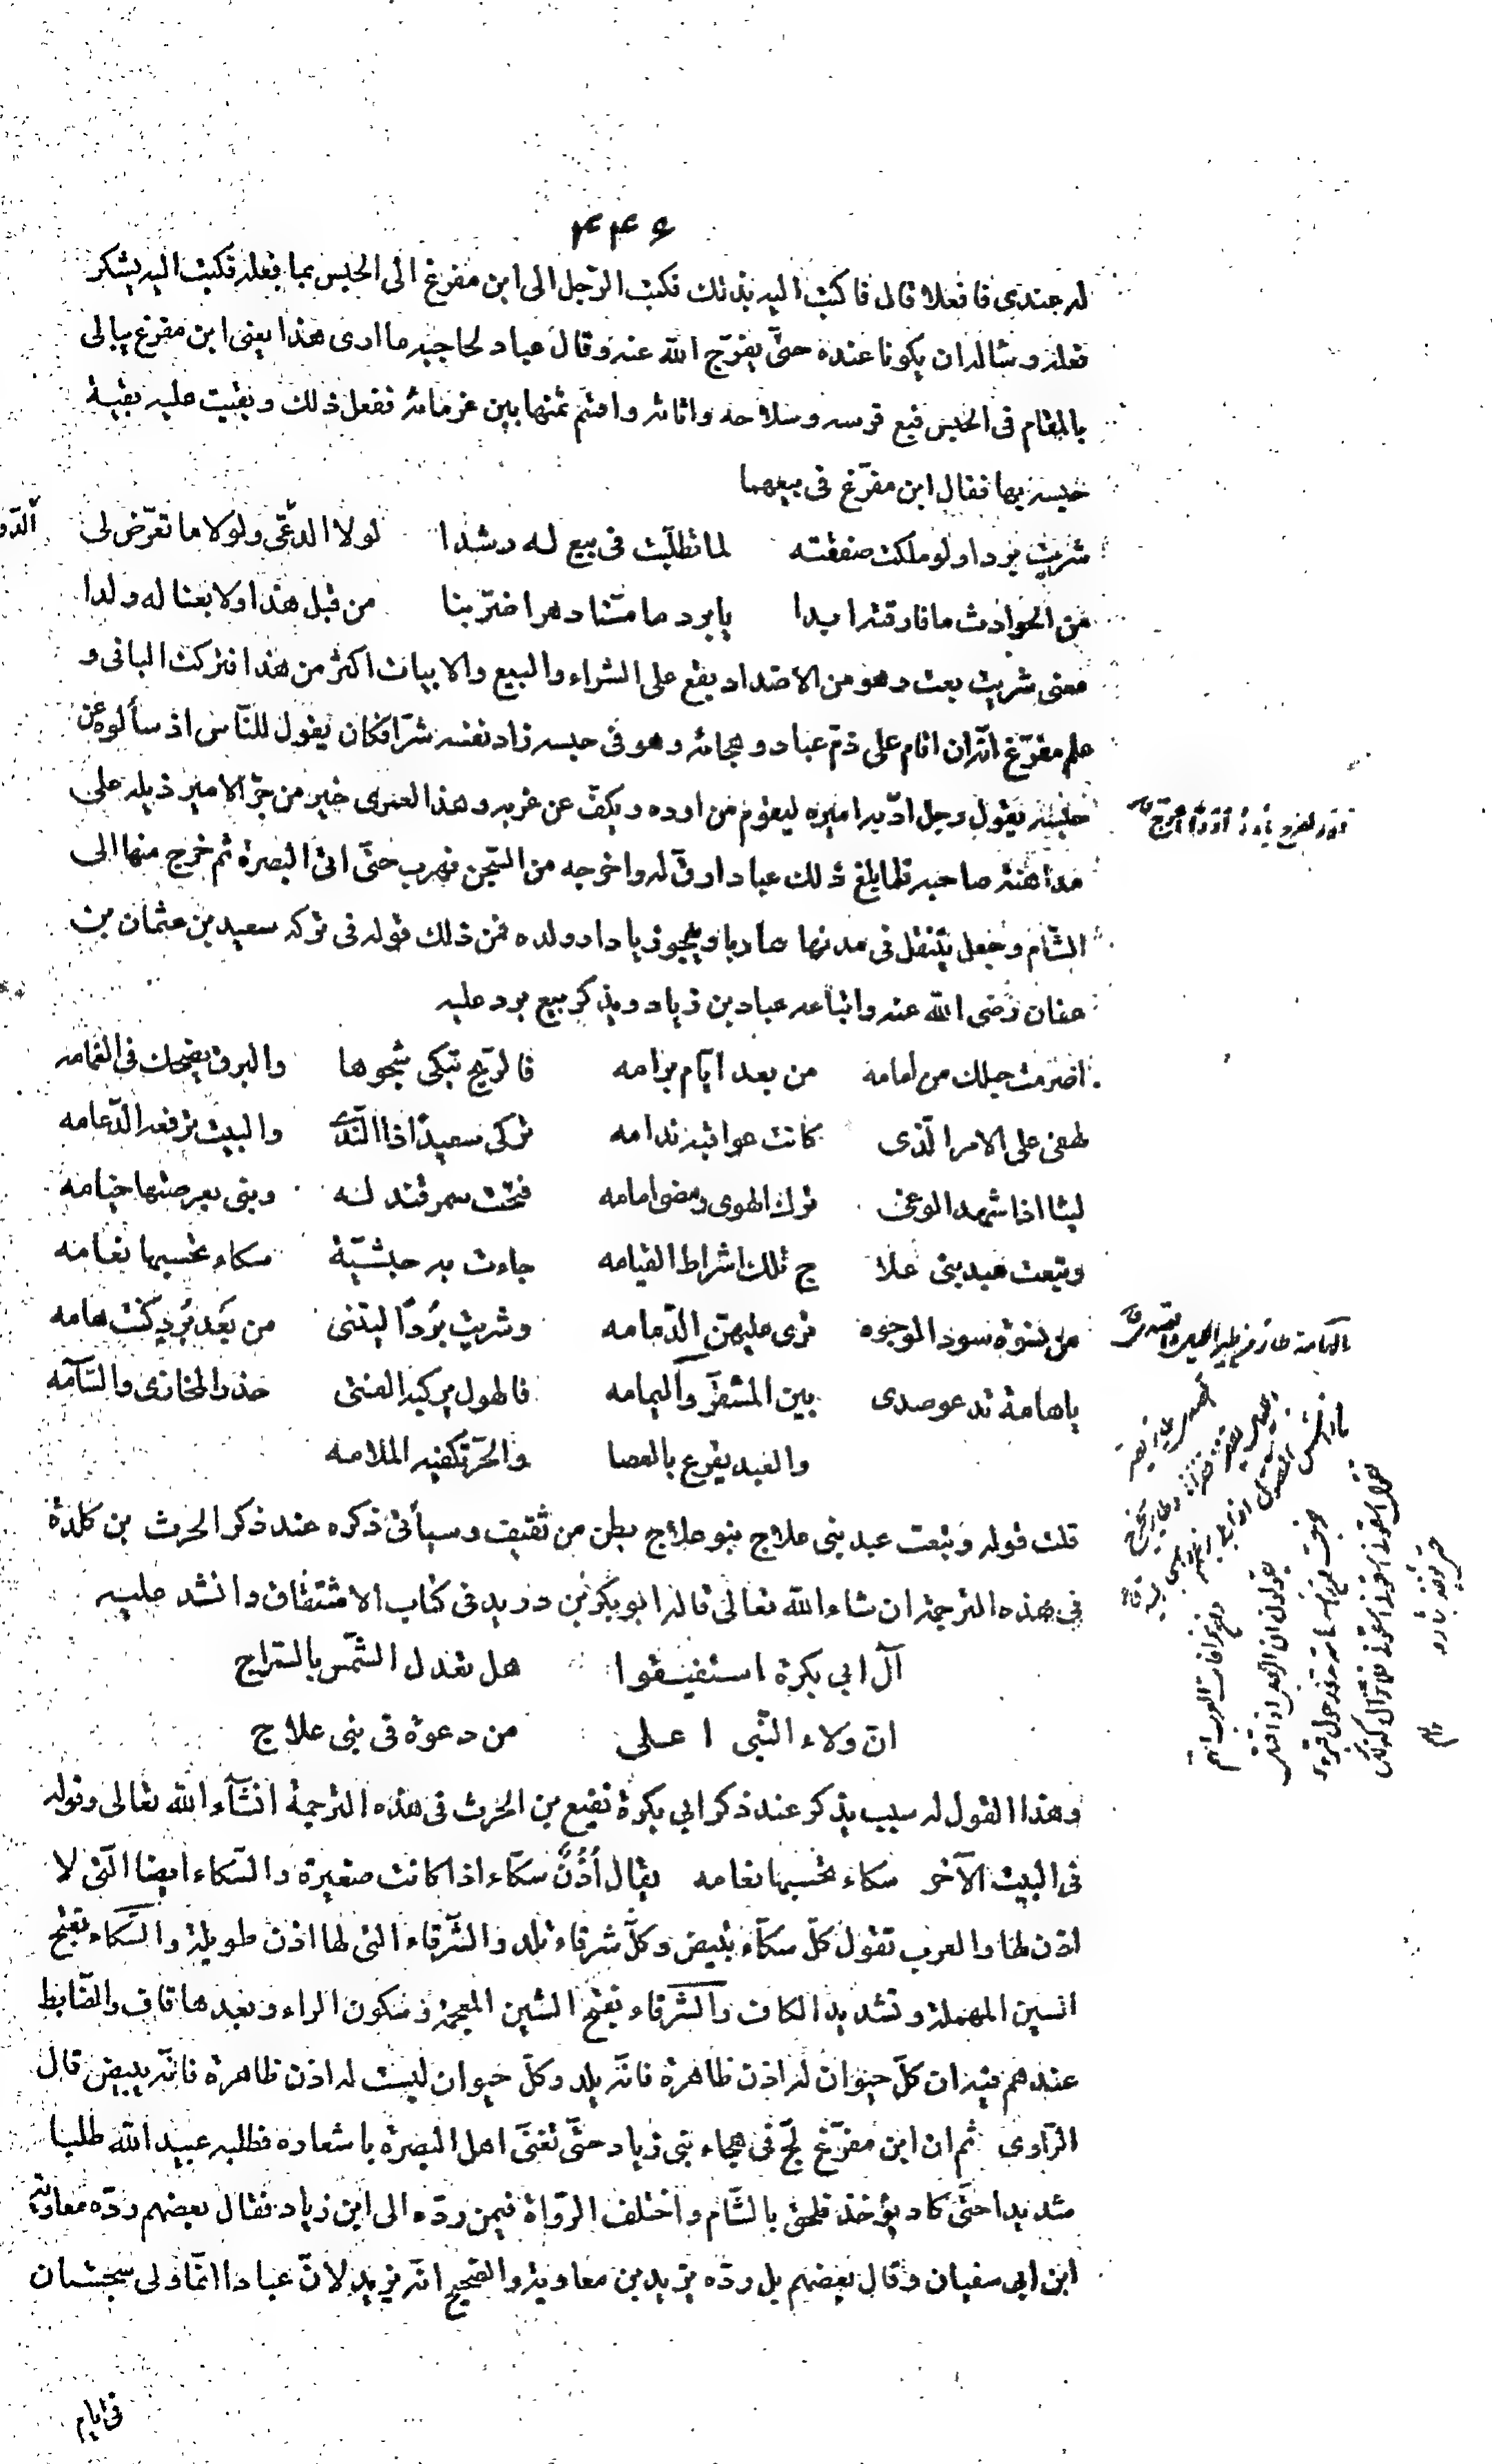 ٤٣٦
له جندى فافعلا قال فاكتبا اليه بذلك فكتب الرّجل الى ابن مفرغ الى الحبس بما فعله فكتب اليه يشكر
فعله وسأله ان يكونا عنده حتّى يفرّج الله عنه وقال عباد لحاجبه ما ارى هذا يعنى ابن مفرغ يبالى
بالمقام فى الحبس فبع فرسه وسلاحه واثاثه واقسم ثمنها بين غرمائه ففعل ذلك وبقيت عليه بقية
حبسه بها فقال ابن مفرّغ فى بيعهما
شريت بردا ولو ملكت صفقته لما تطلّبت فى بيع له رشدا لولا الدعّى ولولا ما تعرّض لى
من الحوادث ما فارقته ابدا يا برد ما مسّنا دهر اضرّ بنا من قبل هذا ولا بعنا له ولدا
معنى شريت بعت وهو من الاضداد يقع على الشراء والبيع والابيات اكثر من هذا فتركت الباقى و
علم مفرّغ انّه ان اقام على ذمّ عباد وهجائه وهو فى حبسه زاد نفسه شرّا فكان يقول للنّاس اذ سألوه عن
حبسه يقول رجل ادّبه اميره ليقوم من اوده ويكفّ عن غربه وهذا لعمرى خير من جرّ الامير ذيله على
مداهنة صاحبه فلما بلغ ذلك عبادا رقّ له واخرجه من السّجن فهرب حتّى اتى البصرة ثم خرج منها الى
الشّام وجعل يتنقل فى مدنها هاربا ويهجو زيادا وولده فمن ذلك قوله فى تركه سعيد بن عثمان بن
عفان رضى الله عنه واتباعه عباد بن زياد ويذكر بيع برد عليه
اضرمت حبلك من امامه من بعد ايّام برامه فالرّيح تبكى شجوها والبرق يضحك فى الغمامه
لهفى على الامر الّذى كانت عواقبه ندامه تركى سعيدًا ذا النّدى والبيت ترفعه الدّعامه
ليثا اذا شهد الوغى ترك الهوى ومضى امامه فتحت سمرقند له وبنى بعرصتها خيامه
وتبعت عبد بنى علا ج تلك اشراط القيامه جاءت به حبشيّة سكاء تحسبها نعامه
من نسوة سود الوجوه ترى عليهنّ الدّمامه وشريت بُردًا ليتنى من بَعد بُردٍ كنت هامه
يا هامة تدعو صدى بين المشقّر واليمامه فالهول يركبه الفتى حذر المخازى والسّآمه
والعبد يقرع بالعصا والحرّ تكفيه الملامه
قلت قوله وتبعت عبد بنى علاج بنو علاج بطن من ثقيف وسيأتى ذكره عند ذكر الحرث بن كلدة
فى هذه الترجمة ان شاء الله تعالى قاله ابو بكر بن دريد فى كتاب الاشتقاق وانشد عليه
آل ابى بكرة استفيقوا هل تعدل الشّمس بالسّراج
انّ ولاء النّبى اعلى من دعوة فى بنى علاج
وهذا القول له سبب يذكر عند ذكر ابى بكرة نفيع بن الحرث فى هذه الترجمة انشآء الله تعالى وقوله
فى البيت الآخر سكاء تحسبها نعامه يقال اُذُنٌ سكّاء اذا كانت صغيرة والسّكاء ايضا الّتى لا
اذن لها والعرب تقول كلّ سكّاء تبيض وكلّ شرقاء تلد والشّرقاء التى لها اذن طويلة والسّكاء بفتح
السين المهملة وتشديد الكاف والشّرقاء بفتح الشين المعجمة وسكون الراء وبعدها قاف والضّابط
عندهم فيه ان كلّ حيوان له اذن ظاهرة فانّه يلد وكلّ حيوان ليست له اذن ظاهرة فانّه يبيض قال
الرّاوى ثم ان ابن مفرّغ لجّ فى هجاء بنى زياد حتّى تغنّى اهل البصرة باشعاره فطلبه عبيد الله طلبا
شديدا حتّى كاد يؤخذ فلحق بالشّام واختلف الرّواة فيمن ردّه الى ابن زياد فقال بعضهم ردّه معاوية
ابن ابى سفيان وقال بعضهم بل ردّه يزيد بن معاوية والصّحيح انّه يزيد لانّ عبادا انّما ولى سجستان
فى ايام